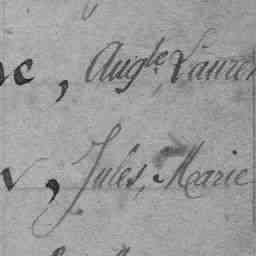 , Aug^le Laure
, Jules, Marie